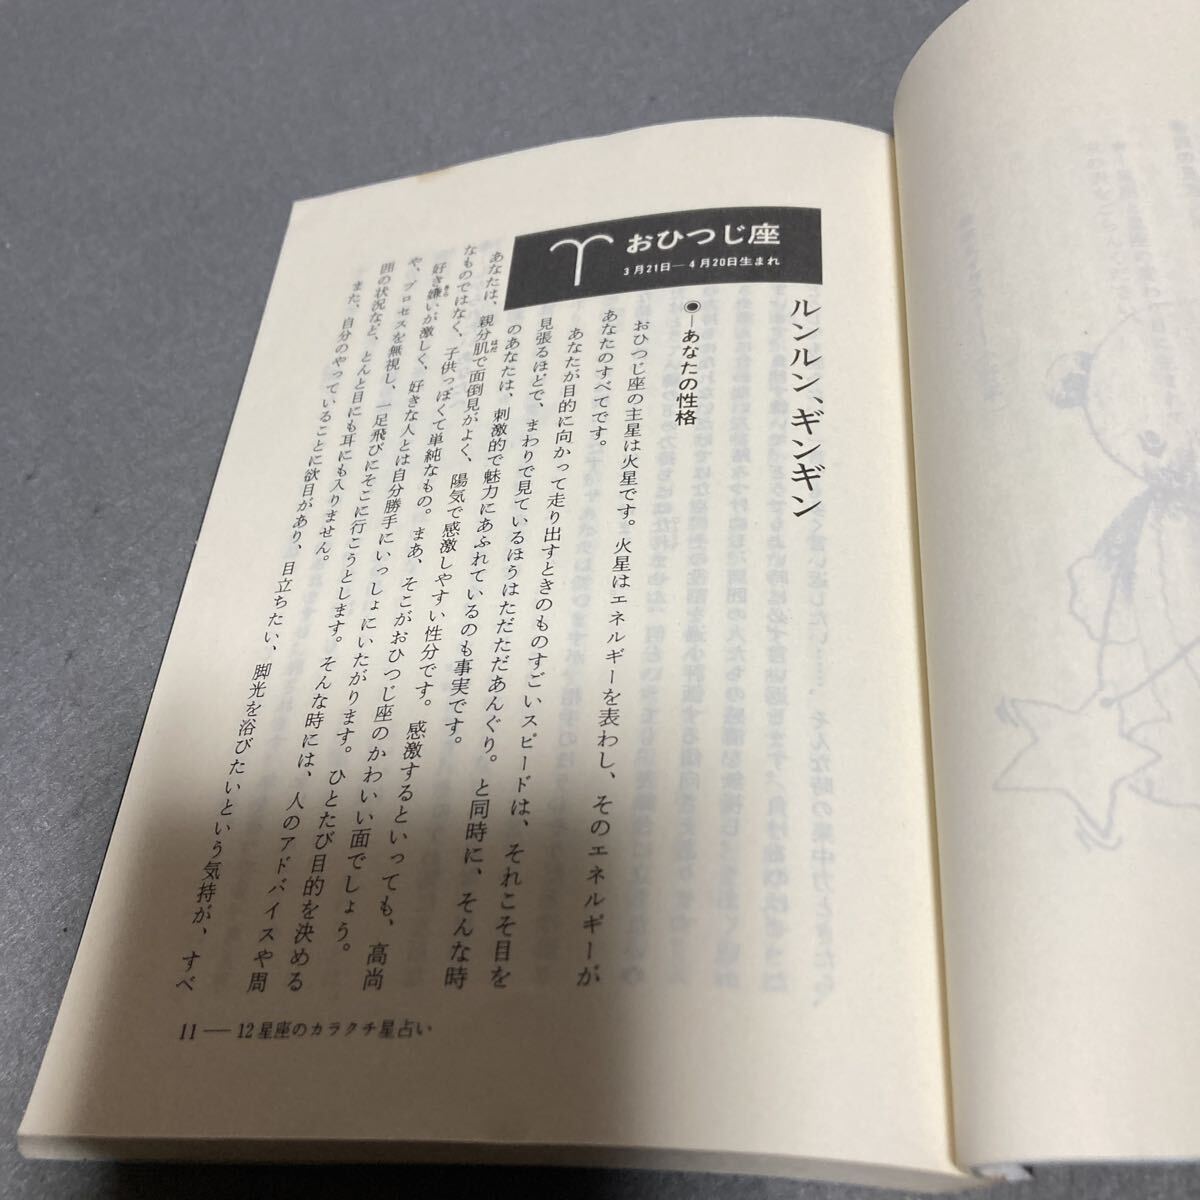 おひつじ座
3月21日―4月20日生まれ
ルンルン、ギンギン
◉―あなたの性格
おひつじ座の主星は火星です。火星はエネルギーを表わし、そのエネルギーが
あなたのすべてです。
あなたが目的に向かって走り出すときのものすごいスピードは、それこそ目を
見張るほどで、まわりで見ているほうはただただあんぐり。と同時に、そんな時
のあなたは、刺激的で魅力にあふれているのも事実です。
あなたは、親分肌で面倒見がよく、陽気で感激しやすい性分です。感激するといっても、高尚
なものではなく、子供っぽくて単純なもの。まあ、そこがおひつじ座のかわいい面でしょう。
好き嫌いが激しく、好きな人とは自分勝手にいっしょにいたがります。ひとたび目的を決める
や、プロセスを無視し、一足飛びにそこに行こうとします。そんな時には、人のアドバイスや周
囲の状況など、とんと目にも耳にも入りません。
また、自分のやっていることに欲目があり、目立ちたい、脚光を浴びたいという気持が、すべ
11―12星座のカラクチ星占い